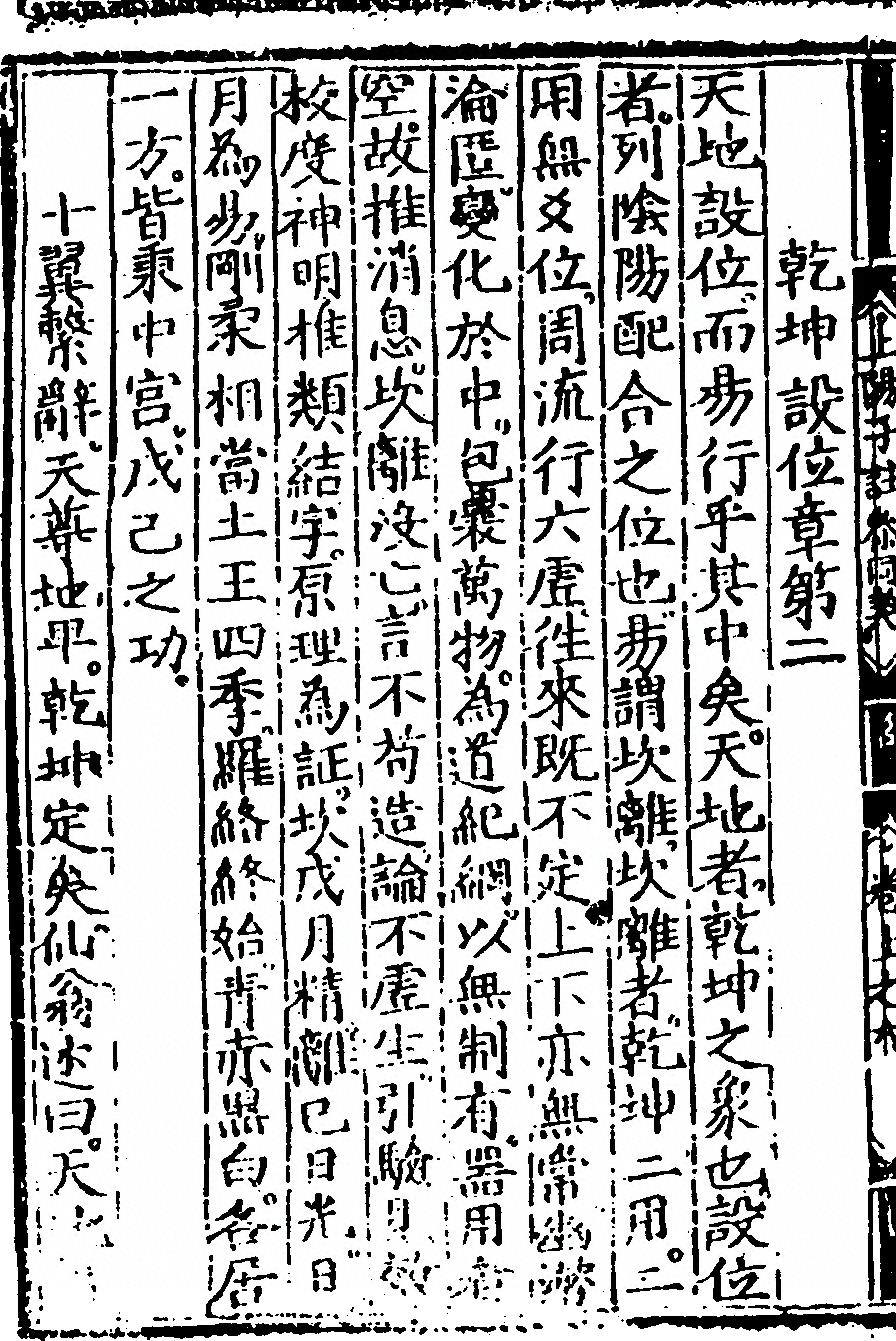 乾坤設位章第二
天地設位而易行乎其中矣天地者乾坤之象也設位
者列陰陽配合之位也易謂坎離坎離者乾坤二用二
用無爻位周流行六虛徃來既不定上下亦無常幽潛
淪匿變化於中包囊萬物為道紀綱以無制有器用者
空故推消息坎離没亡言不苟造論不虛生引驗見效
校度神明推類結字原理為証坎戊月精離己日光日
月為易剛柔相當土王四季羅絡終始青赤黑白各居
一方皆秉中宮戊己之功
十翼繫辭天尊地卑乾坤定矣仙翁述曰天
上陽子註參同契
卷上之